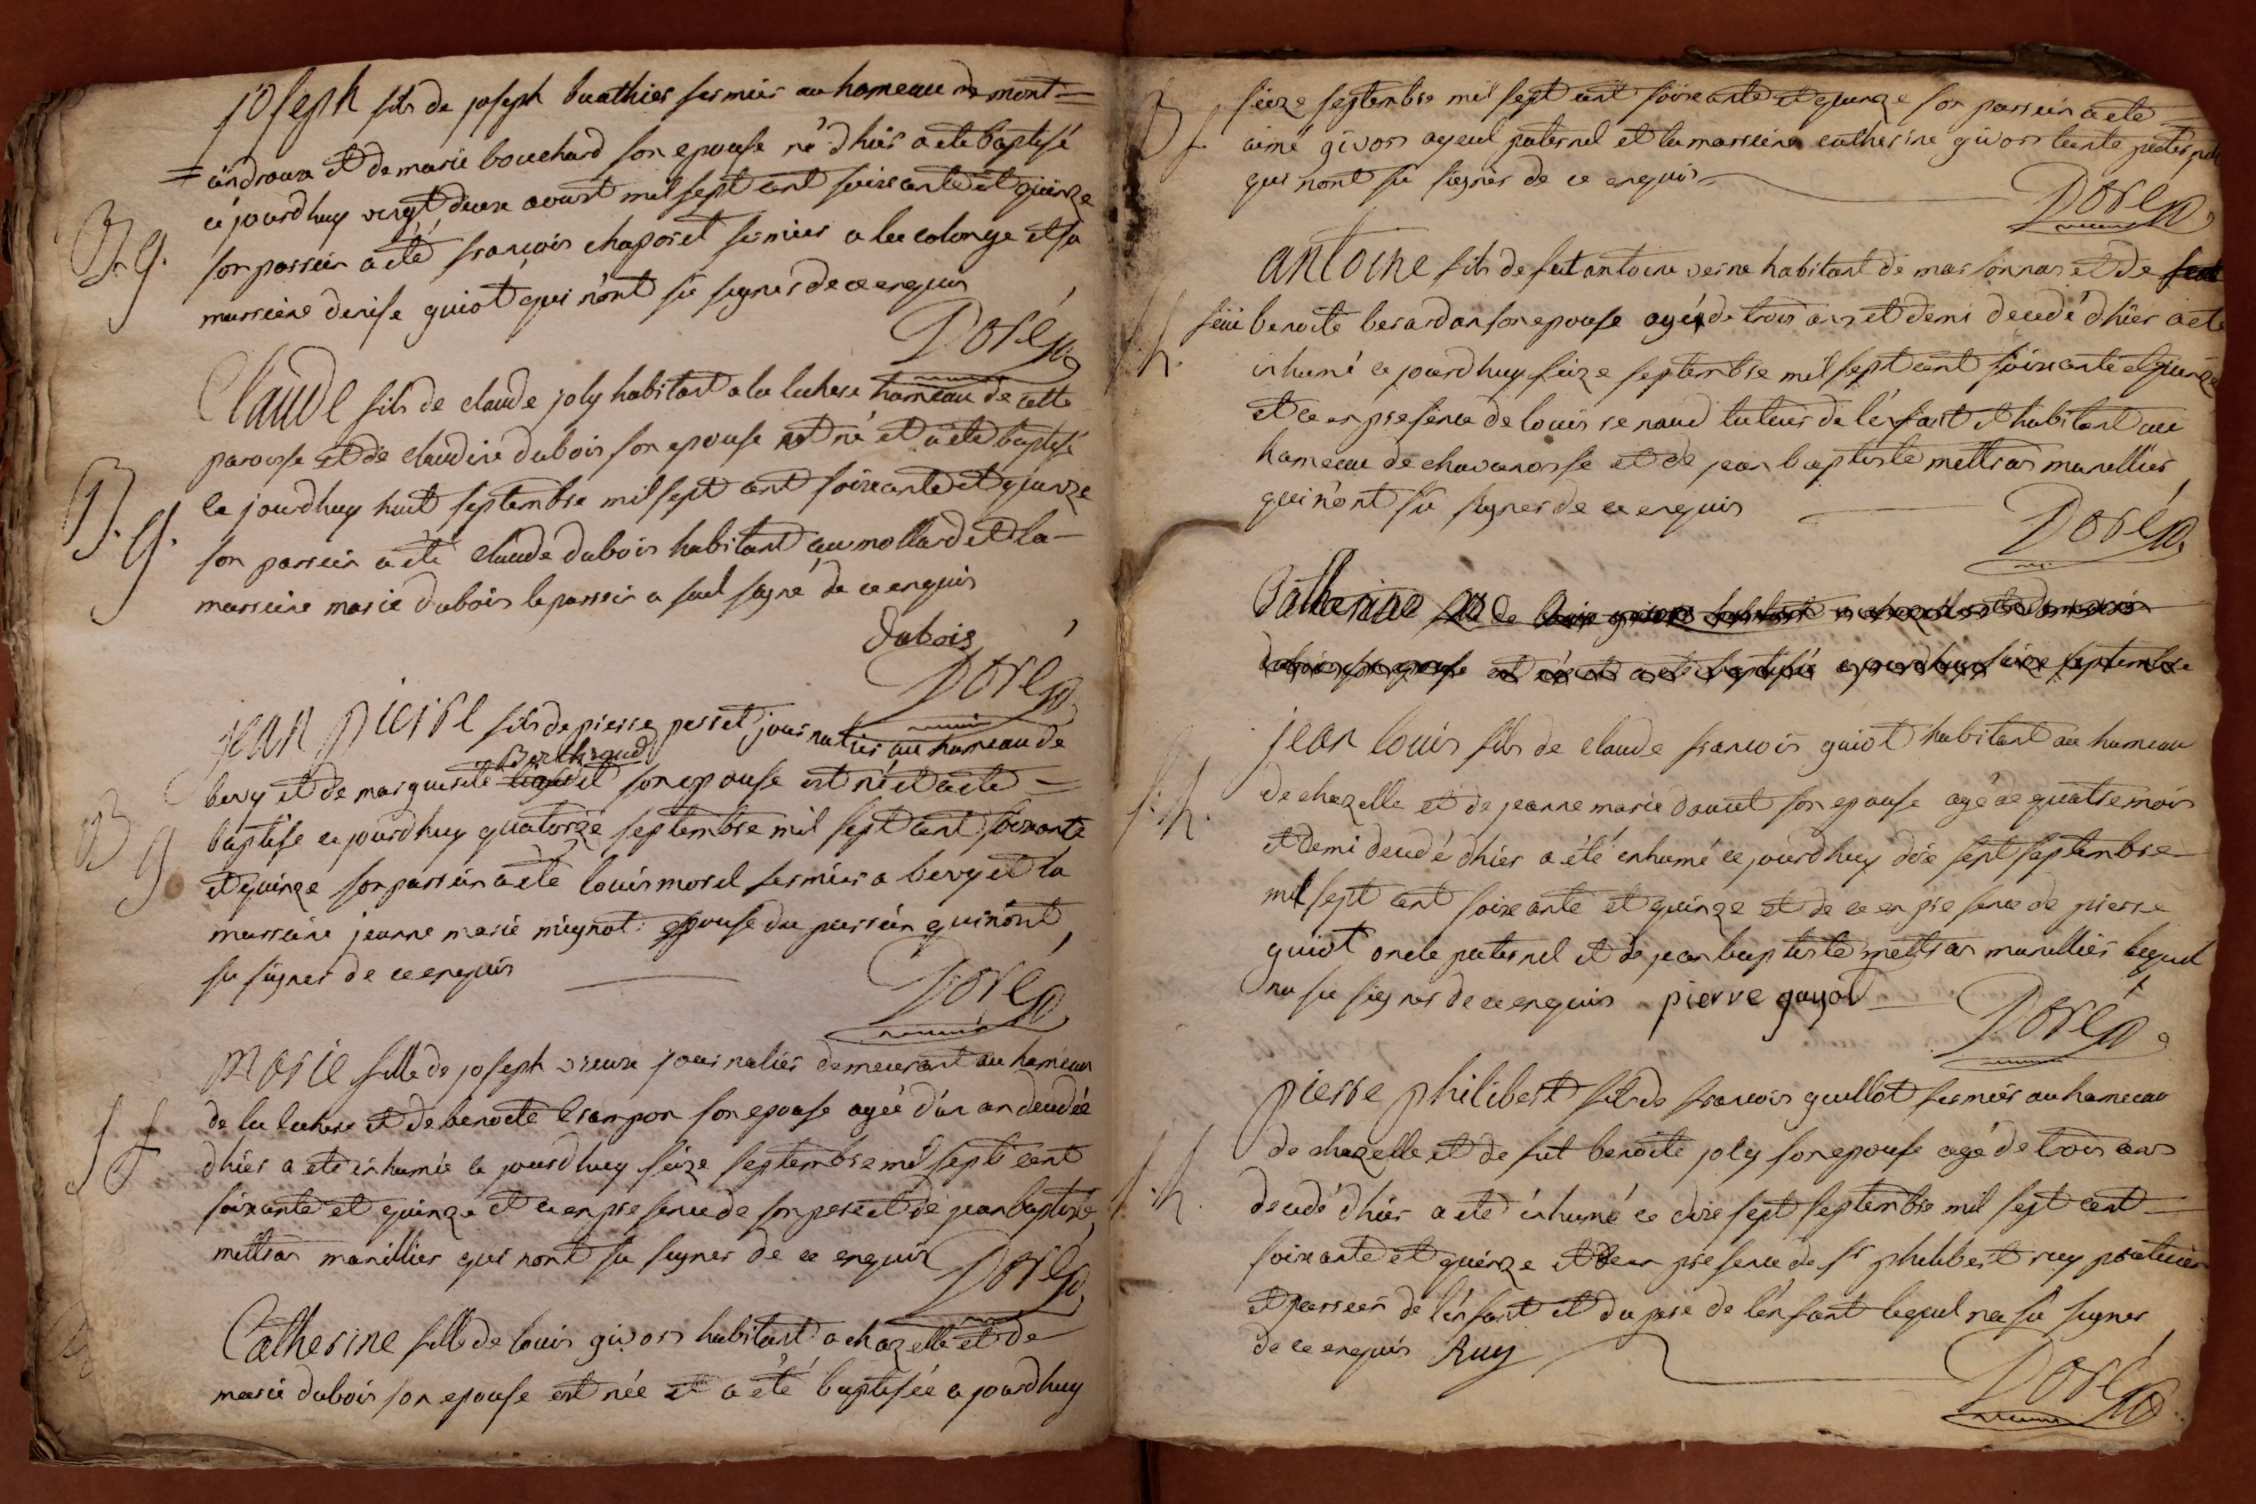 B. g.
joseph fils de joseph buathier fermier au hameau de mont=
=androux et de marie bouchard son epouse né d'hier a ete baptisé
ce jourdhuy vingt deux aoust mil sept cent soixante et quinze
son parrein a été francois chaposet fermier a la colonge et sa
marreine denise guiot qui n'ont su signer de ce enquis
Doré p.
B. g.
Claude fils de claude joly habitant a la luhere hameau de cette
paroisse et de claudine dubois son epouse est né et a eté baptisé
ce jourdhuy huit septembre mil sept cent soixante et quinze
son parrein a été claude dubois habitant au mollard et la
marreine marie dubois le parrein a seul signé de ce enquis
dubois
Doré p.
B g
jean pierre fils de pierre perret journalier au hameau de
bevy et de marguerite son epouse est né et a été =
baptise ce jourdhuy quatorze septembre mil sept cent soixante
et quinze son parrein a eté louis morel fermier a bevy et la
marreine jeanne marie mignot epouse du parrein qui n'ont
su signer de ce enquis
Doré p.
S f
Marie fille de joseph vieux journalier demeurant au hameau
de la luhere et de benoite crampon son epouse agée d'un an decedée
d'hier a eté inhumée ce jourdhuy seize septembre mil sept cent
soixante et quinze et ce en presence de son pere et de jean baptiste
mettras marillier qui nont su signer de ce enquis
Doré p.
Catherine fille de louis givors habitant a chazelle et de
marie dubois son epouse est née et a été baptisée a jourdhuy
B f
seize septembre mil sept cent soixante et quinze son parrein a eté
aimé givors ayeul paternel et la marreine catherine givors tente paternelle
qui nont su signer de ce enquis
Doré p.
S. h.
antoine fils de feu antoine verne habitant de marsonnas et de
feüe benoite berardan son epouse agé de trois ans et demi decedé d'hier a eté
inhumé ce jourdhuy seize septembre mil sept cent soixante et quinze
et ce en presence de louis renaud tuteur de l'enfant et habitant au
hameau de chavanosse et de jean baptiste mettras marillier
qui n'ont su signer de ce enquis
Doré p.
Catherine fille de louis givors habitant a chazelle et de marie
dubois son epouse est née et a eté baptisée ce jourdhuy seize septembre
S. h.
jean louis fils de claude francois guiot habitant au hameau
de chazelle et de jeanne marie doucet son epouse agé de quatre mois
et demi decedé d'hier a été inhumé ce jourdhuy dix sept septembre
mil sept cent soixante et quinze et de ce en presence de pierre
guiot oncle paternel et de jean baptiste mettras marillier lequel
na su signer de ce enquis pierre guyot
Doré p.
S. h.
pierre philibert fils de francois guillot fermier au hameau
de chazelle et de fut benoite joly son epouse agé de trois ans
decedé d'hier a eté inhumé ce dix sept septembre mil sept cent
soixante et quinze et de en presence de sr philibert ruy
et parrein de l'enfant et du pere de l'enfant lequel na su signer
de ce enquis Ruy
Doré p.